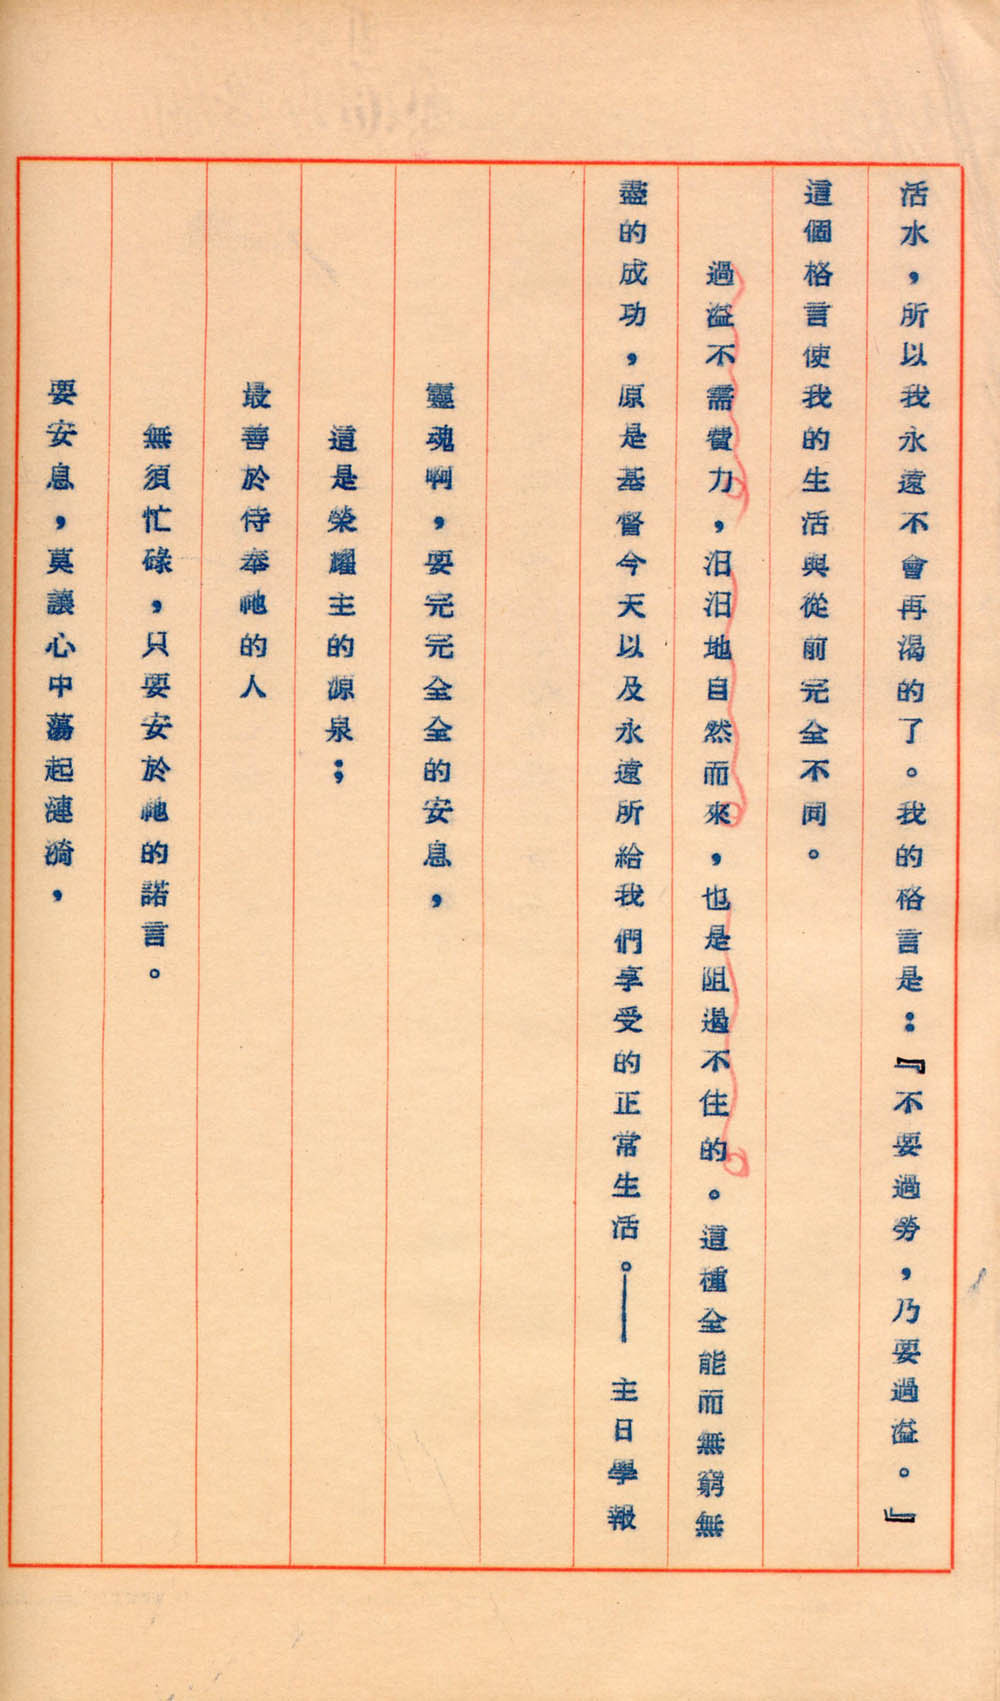 活水，所以我永遠不會再渴的了。我的格言是：『不要過勞，乃要過溢。』
這個格言使我的生活與從前完全不同。
過溢不需費力，汨汨地自然而來，也是阻遏不住的。這種全能而無窮無
盡的成功，原是基督今天以及永遠所給我們享受的正常生活。——主日學報
靈魂啊，要完完全全的安息，
這是榮耀主的源泉；
最善於侍奉祂的人
無須忙碌，只要安於祂的諾言。
要安息，莫讓心中蕩起漣漪，